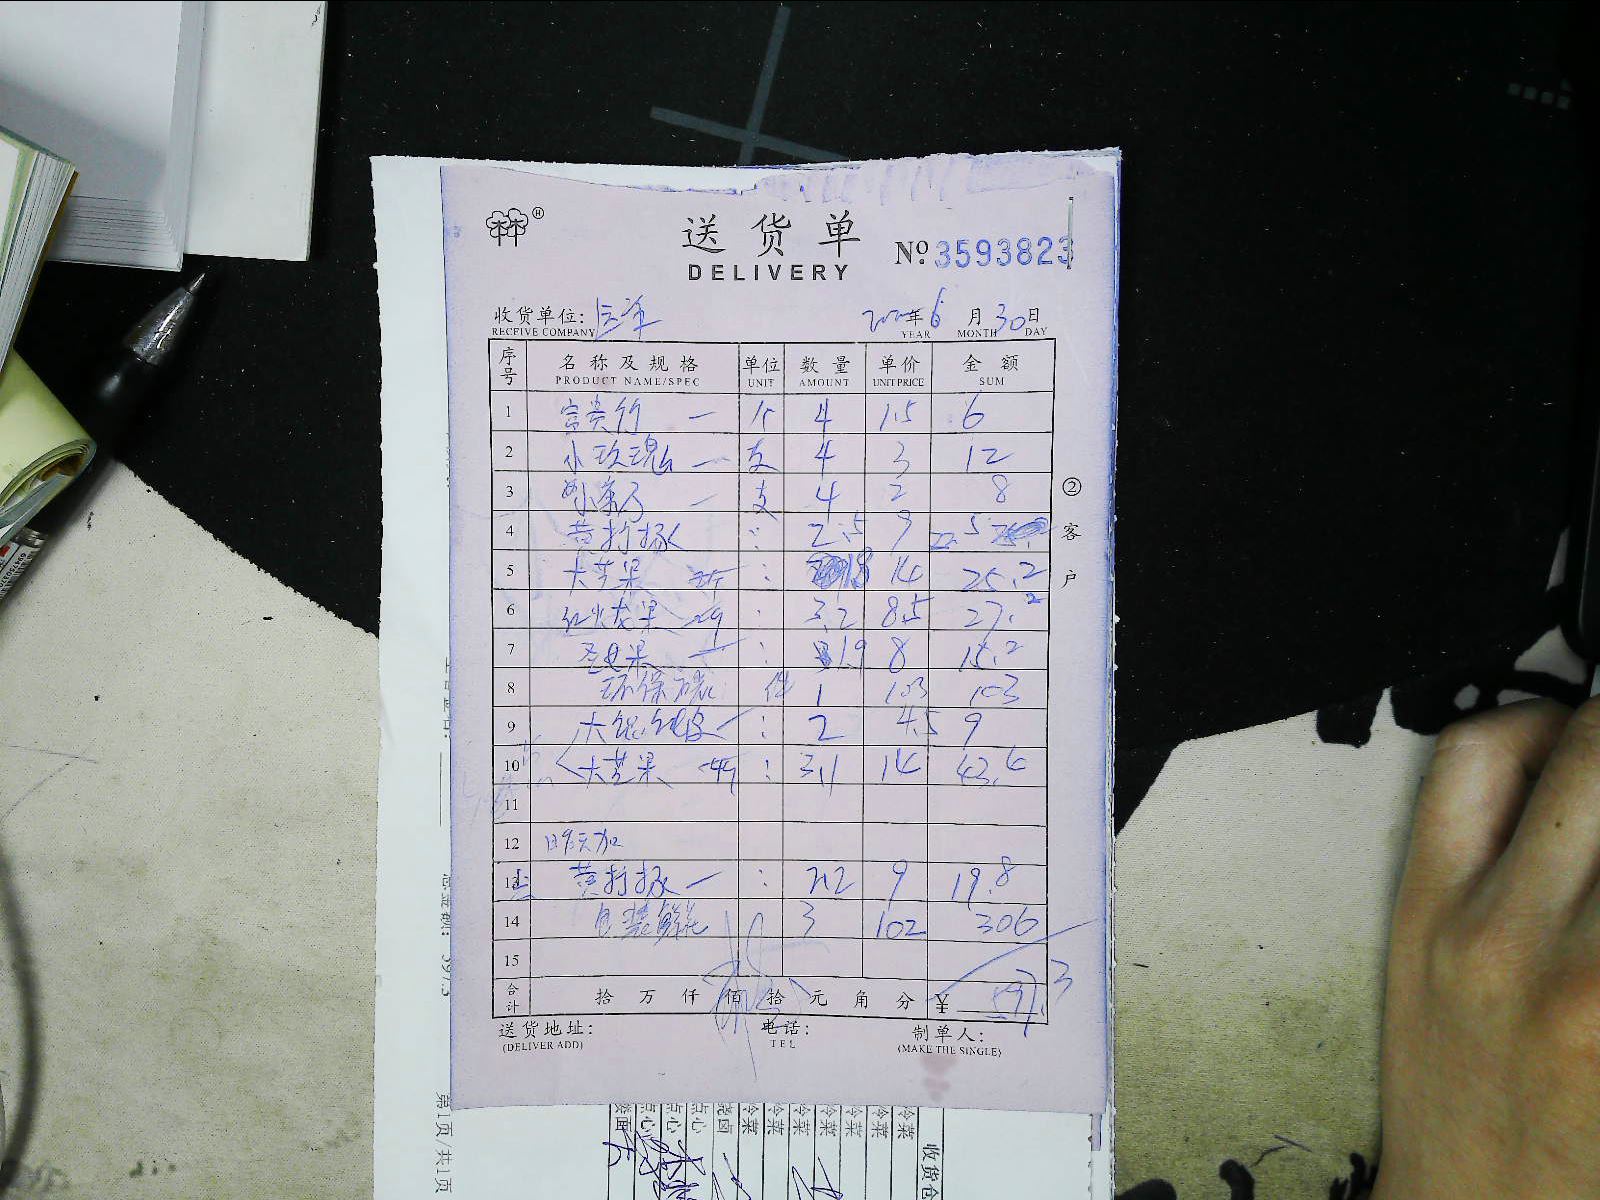 送货单
DELIVERY
№ 3593823
收货单位:
RECEIVE COMPANY
年 6 月 30 日
YEAR MONTH DAY
序号 名称及规格 单位 数量 单价 金额
PRODUCT NAME/SPEC UNIT AMOUNT UNIT PRICE SUM
1 富贵竹 一 个 4 1.5 6
2 小玫瑰 一 支 4 3 12
3 小菊 一 支 4 2 8
4 黄柠檬 : 2.5 9 22.5
5 大芒果 : 1.8 14 25.2
6 红火龙果 : 3.2 8.5 27.2
7 圣女果 : 1.9 8 15.2
8 环保 件 1 103 103
9 大 : 2 4.5 9
10 大芒果 : 3.1 14 43.4
11
12 明天加
13 黄柠檬 一 : 2.2 9 19.8
14 包装 3 102 306
15
合计 拾 万 仟 佰 拾 元 角 分 ¥ 597.3
送货地址: 电话: 制单人:
(DELIVER ADD) TEL (MAKE THE SINGLE)
② 客户
第1页/共1页
点心
点心
点心
烧卤
冷菜
冷菜
冷菜
冷菜
冷菜
冷菜
冷菜
收货仓